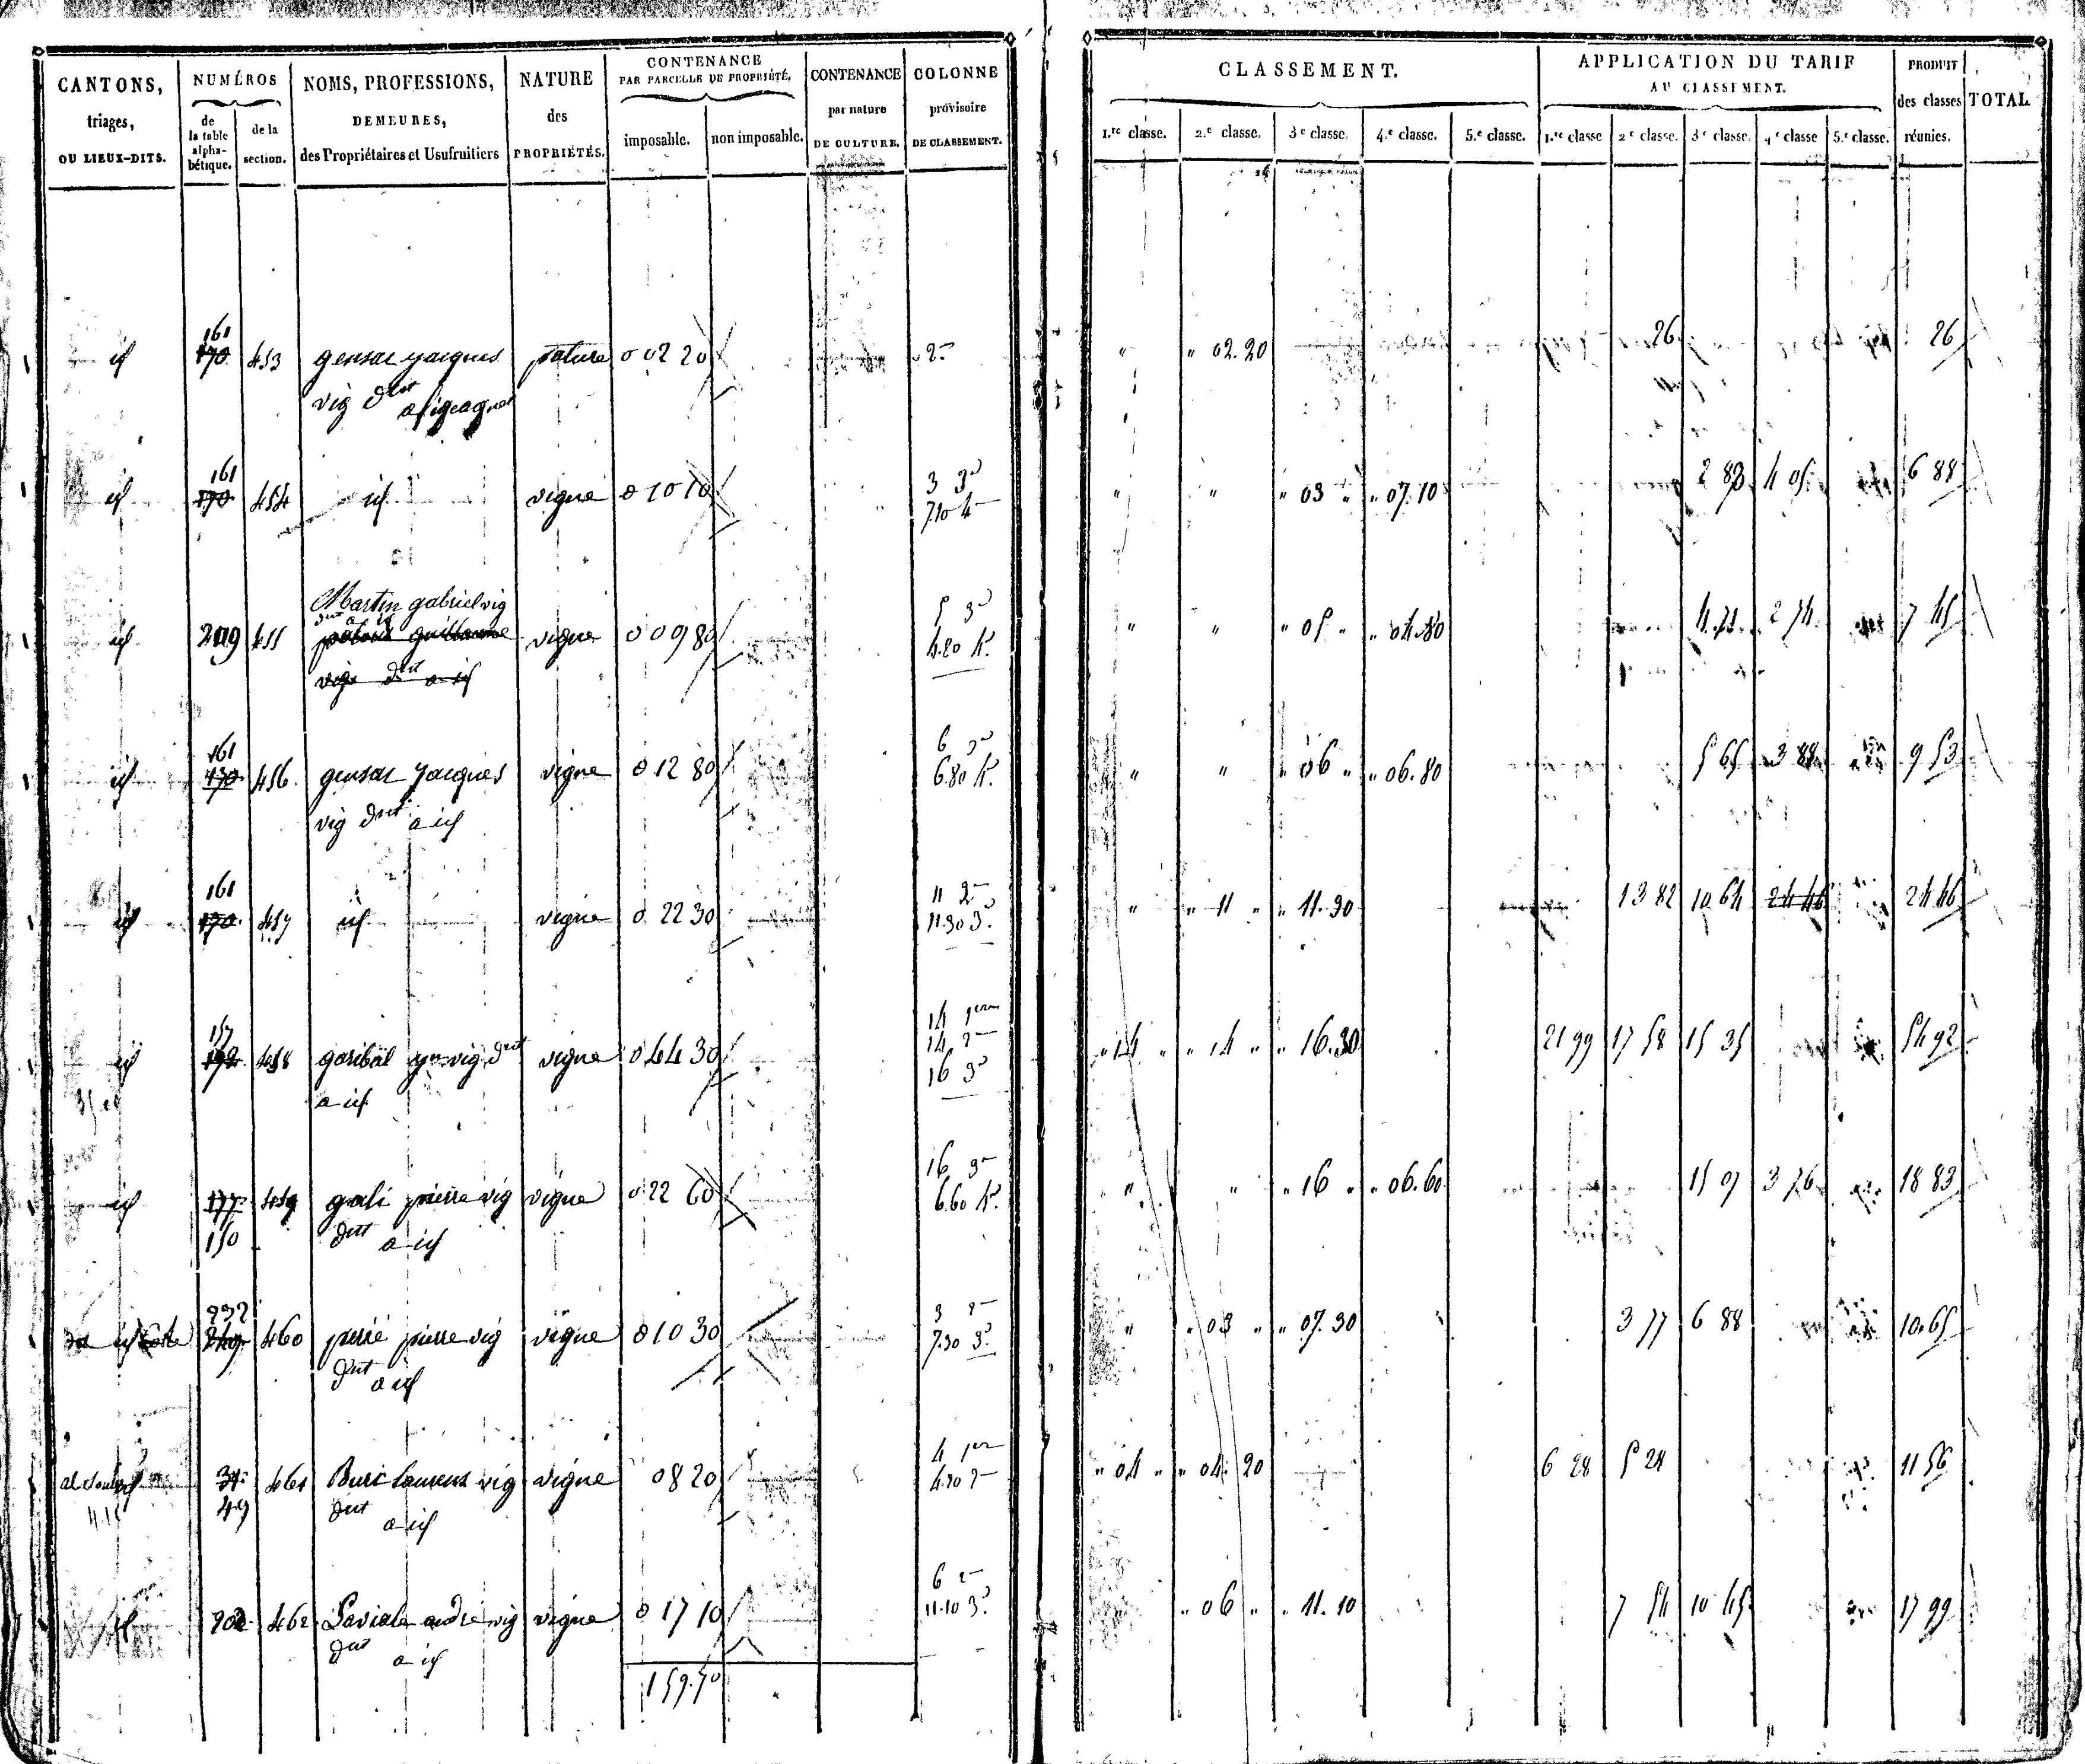 CANTONS, triages, OU LIEUX-DITS.
NUMÉROS
de la table alpha-bétique.
de la section.
NOMS, PROFESSIONS, DEMEURES, des Propriétaires et Usufruitiers
NATURE des PROPRIÉTÉS.
CONTENANCE PAR PARCELLE DE PROPRIÉTÉ.
imposable.
non imposable.
CONTENANCE par nature DE CULTURE.
COLONNE provisoire DE CLASSEMENT.
CLASSEMENT.
1.re classe. 2.e classe. 3e classe. 4.e classe. 5.e classe.
APPLICATION DU TARIF AU CLASSEMENT.
1.re classe 2e classe. 3e classe. 4e classe 5.e classe.
PRODUIT des classes réunies.
TOTAL
161
id 170 453 gensac jacques pature 0 02 20 2e " " 02.20 26 26
vig dut a figeagnol
161 3 3e
id 170 454 id vigne 0 10 10 7.10 4e " " " 03 " " 07.10 2 83 4 05 6 88
Martin gabriel vig
dut a id 5 3e
id 209 455 guillaume vigne 0 09 80 4.80 4e " " " 05 " " 04.80 4.71 2 74 7 45
vig dut a id
161 6 3e
id 170 456 gensac jacques vigne 0 12 80 6.80 4e " " " 06 " " 06.80 5 65 3 88 9 53
vig dut a id
161 11 2e
id 170 457 id vigne 0 22 30 11.30 3e " " 11 " " 11.30 13 82 10 64 24 46 24 46
157 14 1ere
14 2e
id 192 458 garibal vig dut vigne 0 44 30 16 3e " 14 " " 14 " " 16.30 21 99 17 58 15 35 54 92
a id
16 3e
id 177 459 gali pierre vig vigne 0 22 60 6.60 4e " " " 16 " " 06.60 15 07 3 76 18 83
150 dut a id
232 3 2e
id 460 perié pierre vig vigne 0 10 30 7.30 3e " " 03 " " 07.30 3 77 6 88 10.65
dut a id
4 1ere
461 Buric Laurens vig vigne 08 20 4.20 2e " 04 " " 04.20 6 28 5 28 11 56
49 dut a id
6 2e
id 202 462 Laviale andre vig vigne 0 17 10 11.10 3e " 06 " " 11.10 7 54 10 45 17 99
dut a id
159.70